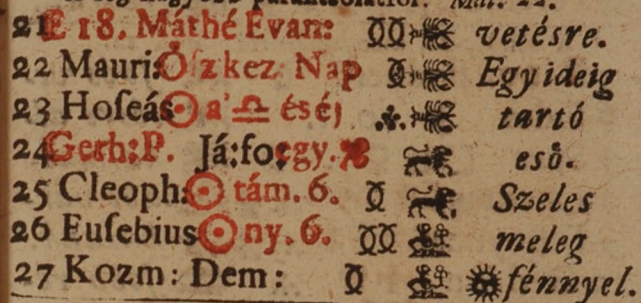 21 E 18. Máthé Evan: vetésre.
22 Mauri: Őszkez. Nap Egy ideig
23 Hoſeás ☉ a' ♎ és éj tartó
24 Gerh: P. Já: fogy. eső.
25 Cleoph: ☉ tám. 6. Szeles
26 Euſebius ☉ ny. 6. meleg
27 Kozm: Dem: fénnyel.